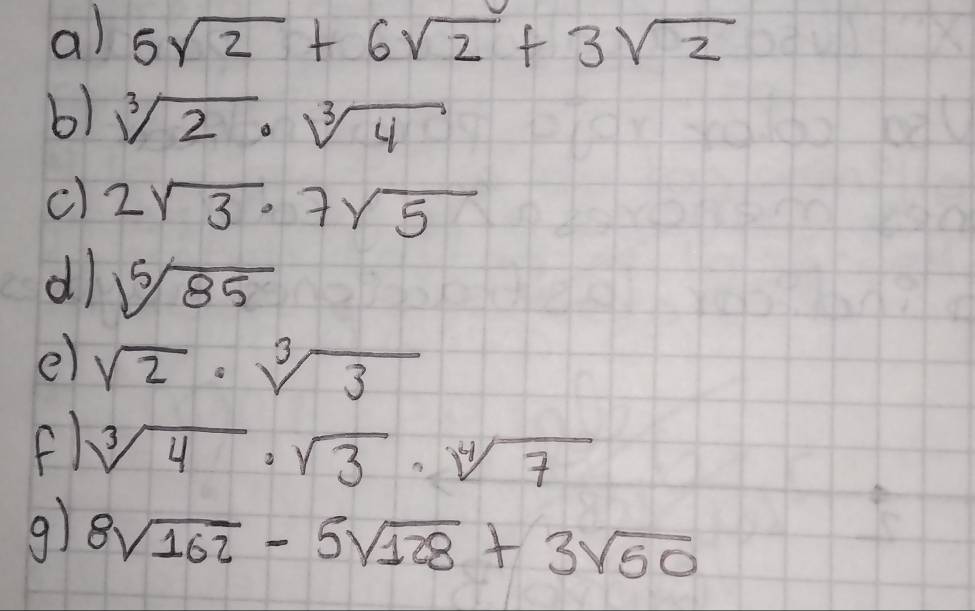 a) 5√2 + 6√2 + 3√2
b) ∛2 · ∛4
c) 2√3 · 7√5
d) ⁵√85
e) √2 · ∛3
f) ∛4 · √3 · ∜7
g) 8√162 - 5√128 + 3√50